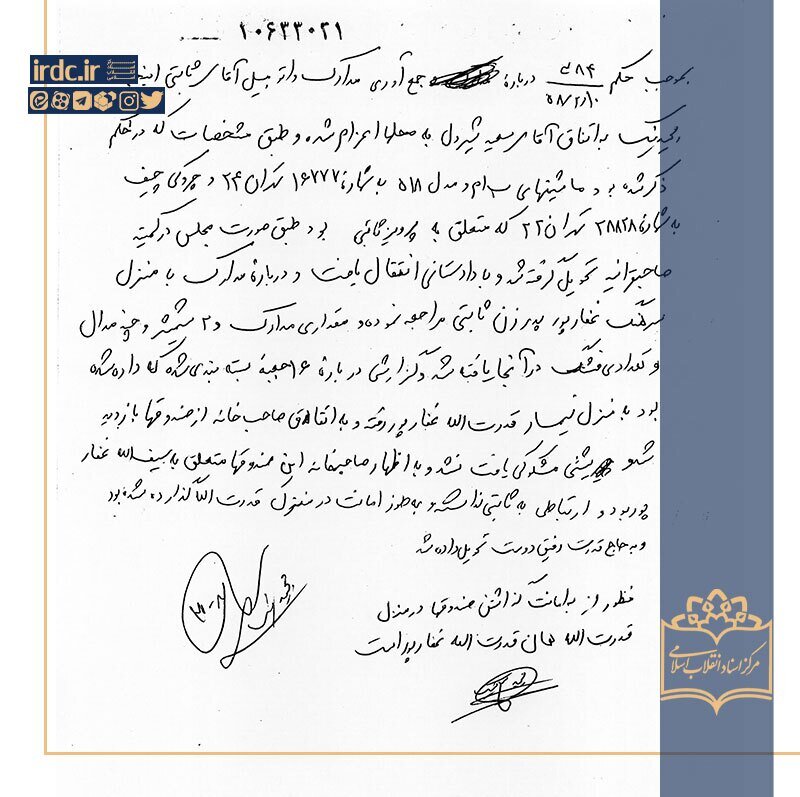 ۱۰۶۳۳۰۲۱
irdc.ir
بموجب حکم ۷۸۴ت ۵۸/۲/۱۰ درباره جمع آوری مدارک و اتومبیل آقای ثابتی
به اتفاق آقای سعید شیردل به محل اعزام شده و طبق مشخصات که در حکم
ذکر شده بود ماشینهای ب ام و مدل ۵۱۸ به شماره ۱۶۷۷۷ تهران ۲۴ و چروکی چیف
به شماره ۲۸۸۲۸ تهران ۲۲ که متعلق به پرویز ثابتی بود طبق صورت مجلس در کمیته
صاحبقرانیه تحویل گرفته شد و به دادستانی انتقال یافت و درباره مدارک به منزل
سرهنگ غفارپور پدر زن ثابتی مراجعه نموده و مقداری مدارک و ۲ شمشیر و چند مدال
و تعدادی فشنگ در آنجا یافته شد و گزارشی درباره ۱۶ جعبه بسته بندی شده که داده شده
بود به منزل تیمسار قدرت الله غفارپور رفته و به اتفاق صاحب خانه از صندوقها بازدید
شد و شئی مشکوکی یافت نشد و به اظهار صاحبخانه این صندوقها متعلق به سیف الله غفار
پور بود و ارتباطی به ثابتی نداشته و به طور امانت در منزل قدرت الله گذارده شده بود
و به حاج قدرت رفیق دوست تحویل داده شد
منظور از به امانت گذاشتن صندوقها در منزل
قدرت الله همان قدرت الله غفارپور است
مرکز اسناد انقلاب اسلامی